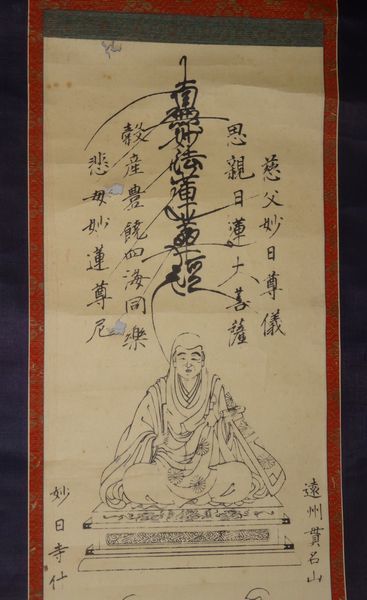 慈父妙日尊儀
思親日蓮大菩薩
南無妙法蓮華経
穀産豊饒四海同樂
悲母妙蓮尊尼
遠州貫名山
妙日寺什